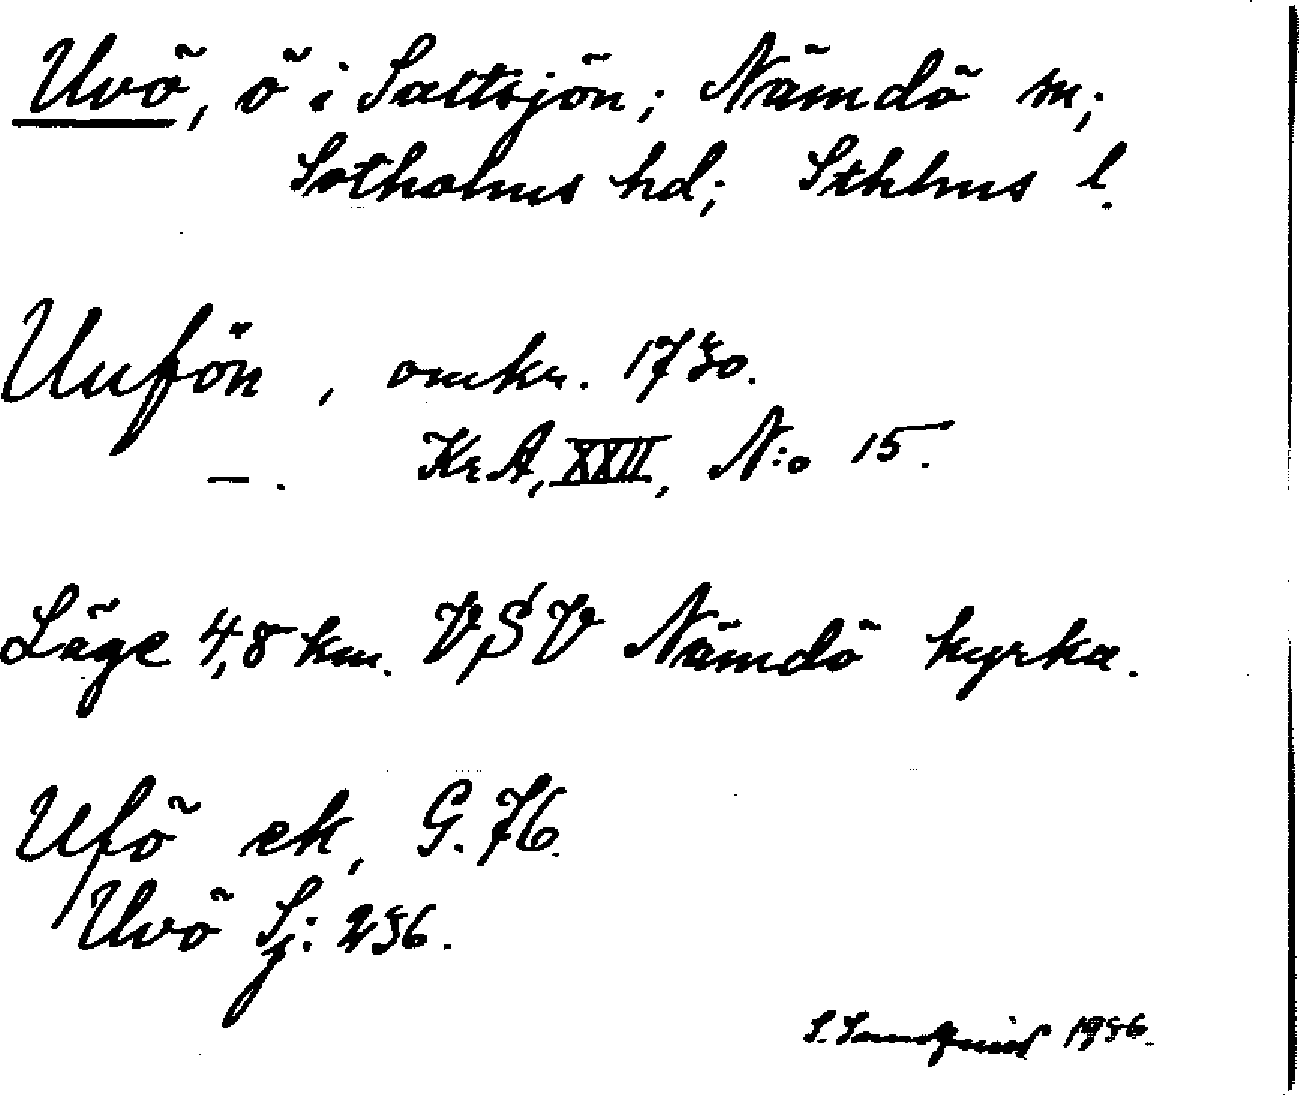 Uvö, ö i Saltsjön; Nämdö sn;
Sotholms hd; Sthlms l.
Uufön, omkr. 1730.
—. KrA, XXII, N:o 15.
Läge 4,8 km. VSV Nämdö kyrka.
Ufö ek, G. 76.
Uvö Sj: 236.
S. 1936.